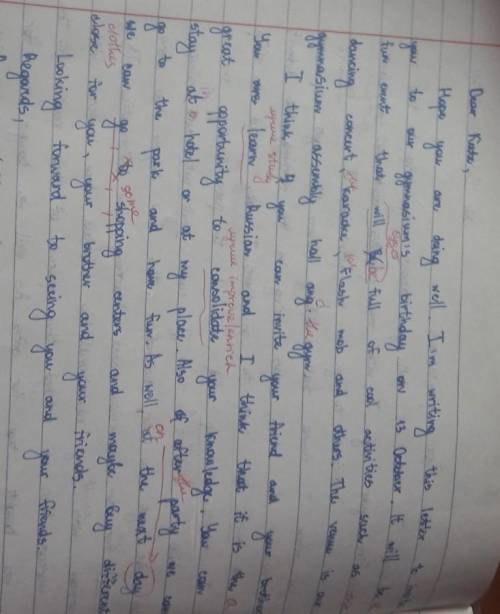 Dear Kate,
Hope you are doing well. I'm writing this letter to
you to our gymnasium's birthday on 13 October. It will be
fun event that will full of cool activities such as
dancing concert, karaoke, flash mob and others. The venue is
gymnasium assembly hall and the gym.
I think if you can invite your friend and your
You learn Russian and I think that it is the a
great opportunity to consolidate your knowledge. You can
stay at a hotel or at my place. Also of after the party we can
go to the park and have fun. As well, at the next day
on
we can go to shopping centers and maybe buy
some
close for you, your brother and your friends.
clothes
Looking forward to seeing you and your friends.
Regards,